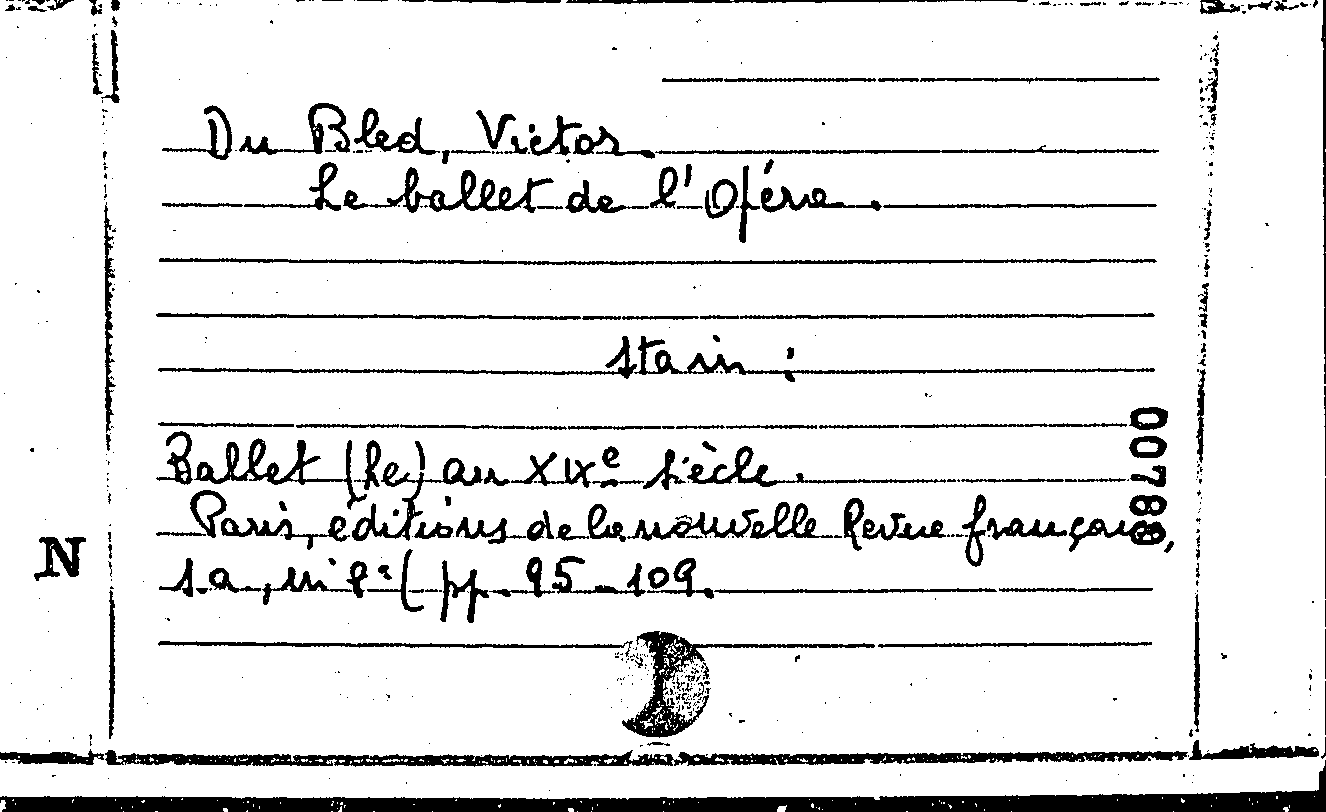 Du Bled, Victor.
Le ballet de l'Opéra.
sta in :
Ballet (Le) au XIXe siècle.
Paris, éditions de la nouvelle Revue française,
s.a., in 8° ( pp. 95-109.
00788
N